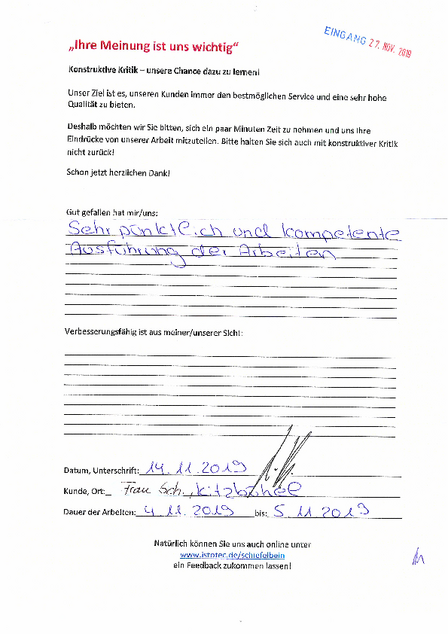 „Ihre Meinung ist uns wichtig“
EINGANG 27. NOV. 2019
Konstruktive Kritik – unsere Chance dazu zu lernen!
Unser Ziel ist es, unseren Kunden immer den bestmöglichen Service und eine sehr hohe
Qualität zu bieten.
Deshalb möchten wir Sie bitten, sich ein paar Minuten Zeit zu nehmen und uns Ihre
Eindrücke von unserer Arbeit mitzuteilen. Bitte halten Sie sich auch mit konstruktiver Kritik
nicht zurück!
Schon jetzt herzlichen Dank!
Gut gefallen hat mir/uns:
Sehr pünktlich und kompetente
Ausführung der Arbeiten
Verbesserungsfähig ist aus meiner/unserer Sicht:
Datum, Unterschrift: 14.11.2019
Kunde, Ort: Frau Sch., Kitzbühel
Dauer der Arbeiten: 4.11.2019 bis: 5.11.2019
Natürlich können Sie uns auch online unter
www.isotec.de/schiefelbein
ein Feedback zukommen lassen!